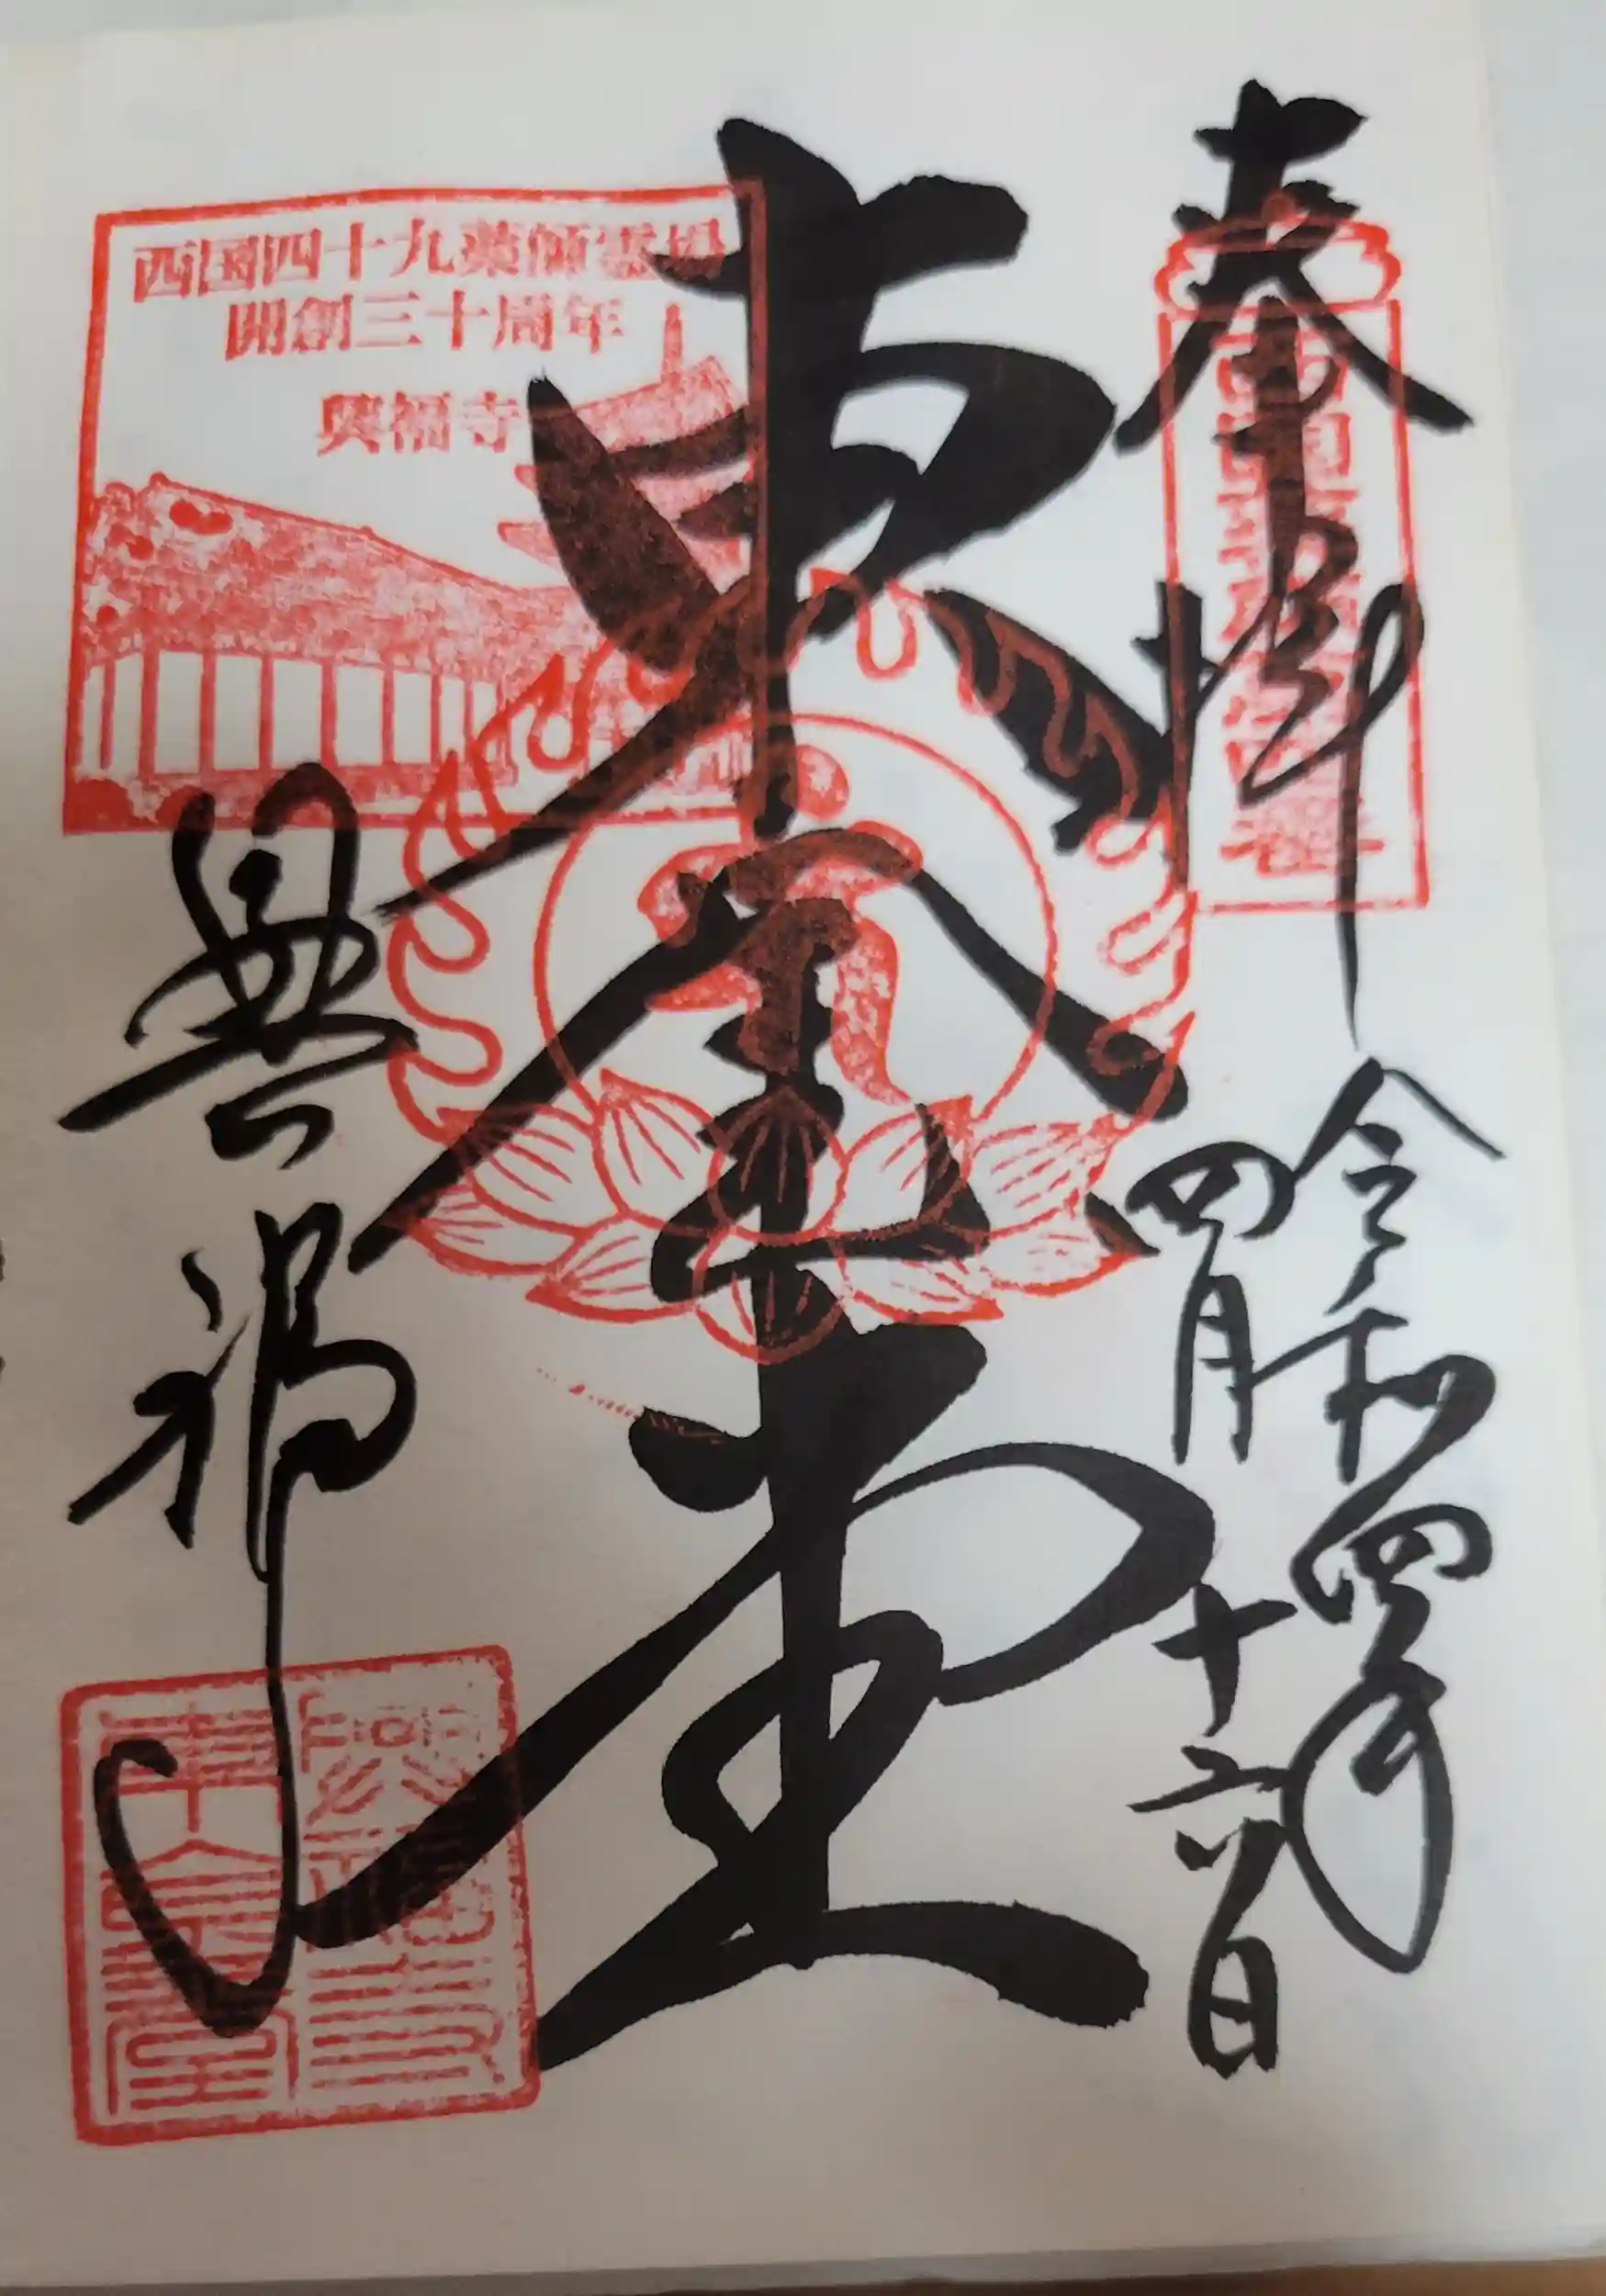 奉拝
令和四年
四月十六日
東金堂
西国四十九薬師霊場
開創三十周年
興福寺
興福寺
興福寺
東金堂